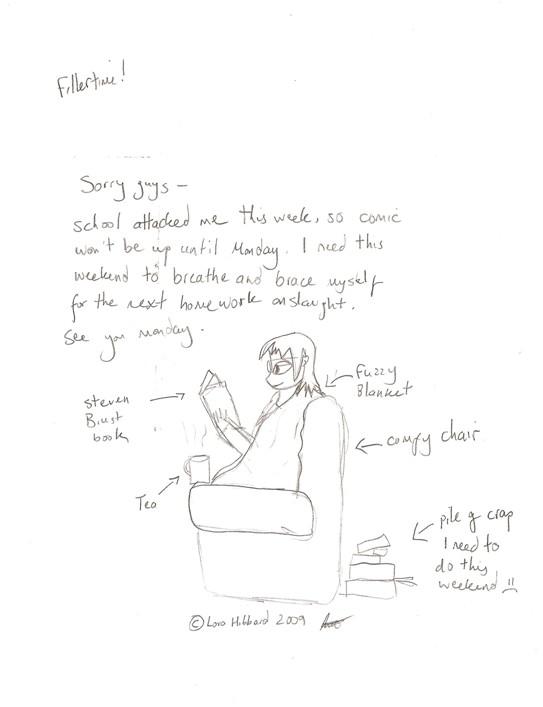 Fillertime!
Sorry guys –
school attacked me this week, so comic
won't be up until Monday. I need this
weekend to breathe and brace myself
for the next homework onslaught.
See you Monday.
Steven
Brust
book
Fuzzy
Blanket
comfy chair
Tea
pile of crap
I need to
do this
weekend
© Lora Hibbard 2009